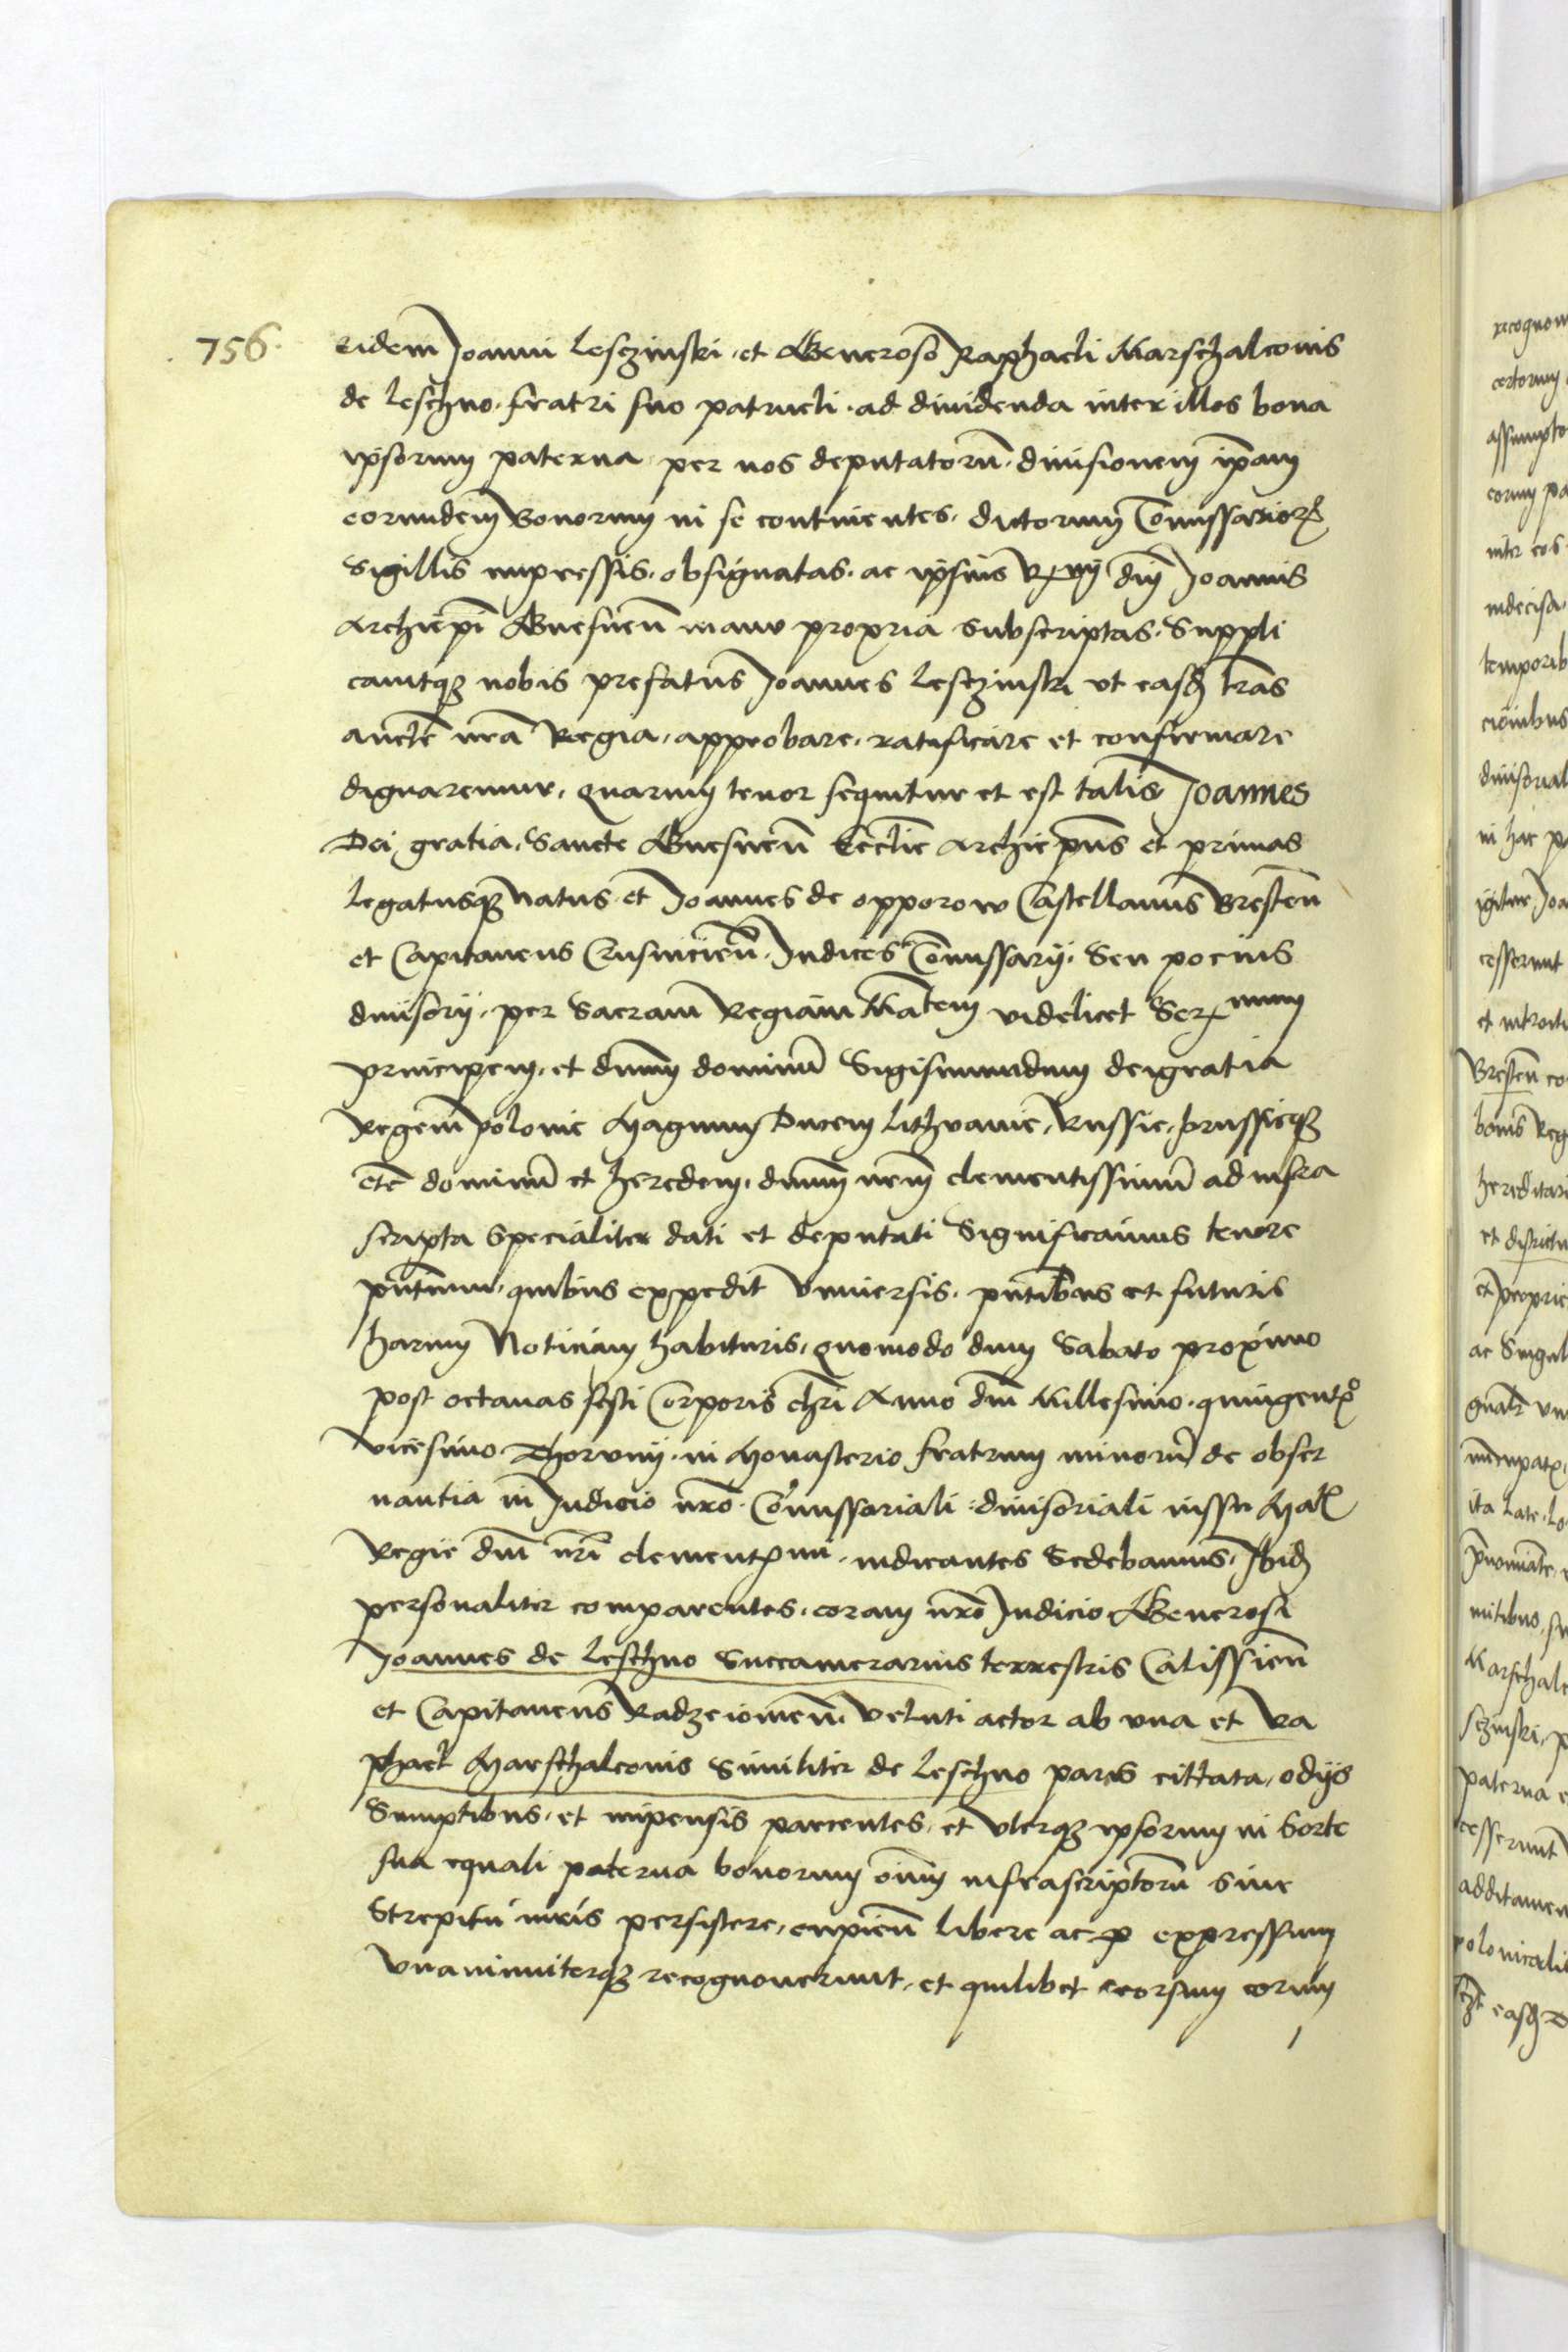 756.
eidem Joanni Lesczinski, et Generoso Raphaeli Marschalconis
de leschno. fratri suo patrueli. ad dividenda inter illos bona
ipsorum paterna per nos deputatorũ, divisionem ipsam
eorundem Bonorum in se continentes, dictorum Cõmissarior̃
Sigillis impressis, obsignatas, ac ipsius dñi Joannis
Archiepĩ Gnesneñ manu propria subscriptas. Suppli
cavitqȝ nobis prefatus Joannes Lesczinski ut easdẽ lrãs
aucte nrã Regia, approbare, ratificare et confirmare
dignaremur, quarum tenor sequitur et est talis Joannes
Dei gratia, Sancte Gnesneñ Ecclie Archiepũs et primas
legatusqȝ natus et Joannes de opporow Castellanus Bresteñ
et Capitaneus Crusvicieñ. Judices Cõmissarij. Seu pocius
divisorij, per Sacram Regiam Matem videlicet Ser mum
principem, et dnum dominũ Sigismundum dei gratia
Regem polonie Magnum Ducem Lithvanie, Russie, prussieqȝ
etc̃ dominũ et heredem, dnum nrm clementissimũ ad infra
scripta specialiter dati et deputati Significamus tenore
pñtium, quibus expedit Universis, pñtibus et futuris
harum Noticiam habituris, quomodo dum Sabato proximo
post octavas festi Corporis chrĩ Anno dnĩ Millesimo. quingent°
vicesimo Thorunij. in Monasterio fratrum minorũ de obser
vantia in Judicio nrõ Cõmissariali divisoriali iussu Matis
Regie dnĩ nrĩ clement mi iudicantes Sedebamus, Ibidẽ
personaliter comparentes, coram nrõ Judicio Generosi
Joannes de Leschno Succamerarius terrestris Calissieñ
et Capitaneus Radzeioviẽn, veluti actor ab una et Ra
phael Marschalconis Similiter de Leschno pars cittata, odijs
Sumptibus, et impensis parcentes, et uterqȝ ipsorum in Sorte
sua equali paterna bonorum oĩum infrascriptorũ sine
Strepitu iuris persistere, cupieñ libere ac p expressum
Unanimiterqȝ recognoverunt, et quilibet seorsum eorum